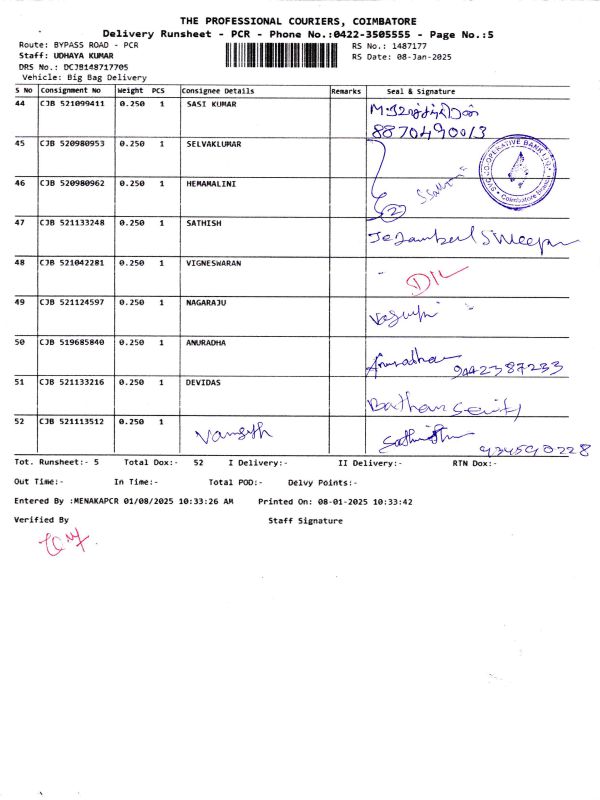 THE PROFESSIONAL COURIERS, COIMBATORE
Delivery Runsheet - PCR - Phone No.:0422-3505555 - Page No.:5
Route: BYPASS ROAD - PCR
RS No.: 1487177
Staff: UDHAYA KUMAR
RS Date: 08-Jan-2025
DRS No.: DCJB148717705
Vehicle: Big Bag Delivery
S No Consignment No Weight PCS Consignee Details Remarks Seal & Signature
44 CJB 521099411 0.250 1 SASI KUMAR
8870490013
45 CJB 520980953 0.250 1 SELVAKUMAR
46 CJB 520980962 0.250 1 HEMAMALINI
2
47 CJB 521133248 0.250 1 SATHISH
48 CJB 521042281 0.250 1 VIGNESWARAN
D/L
49 CJB 521124597 0.250 1 NAGARAJU
50 CJB 519685840 0.250 1 ANURADHA
Anuradha 9442387233
51 CJB 521133216 0.250 1 DEVIDAS
52 CJB 521113512 0.250 1
Tot. Runsheet:- 5 Total Dox:- 52 I Delivery:- II Delivery:- RTN Dox:-
Out Time:- In Time:- Total POD:- Delvy Points:-
Entered By :MENAKAPCR 01/08/2025 10:33:26 AM Printed On: 08-01-2025 10:33:42
Verified By Staff Signature